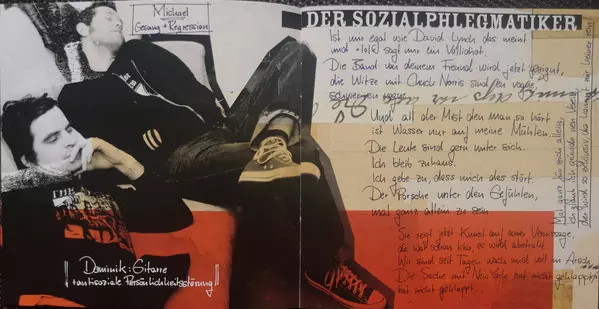 Michael
Gesang + Regression
Dominik: Gitarre
+ antisoziale Persönlichkeitsstörung
DER SOZIALPHLEGMATIKER
Ist mir egal wie David Lynch das meint
und *lol* sagt nur ein Vollidiot.
Die Band von deinem Freund wird jetzt gesignt,
die Witze mit Chuck Norris sind so vogue,
schweigen
Und all der Mist den man so hört
ist Wasser nur auf meine Mühlen.
Die Leute sind gern unter sich.
Ich bleib zuhaus.
Ich gebe zu, dass mich das stört.
Der Porsche unter den Gefühlen,
mal ganz allein zu sein.
Sie sagt jetzt Kunst auf einer Vernissage,
da war schon klar, es wird abstrakt.
Wir sind seit Tagen wach und voll im Arsch.
Die Sache mit New York hat nicht geklappt,
hat nicht geklappt...
Mal ganz für sich allein,